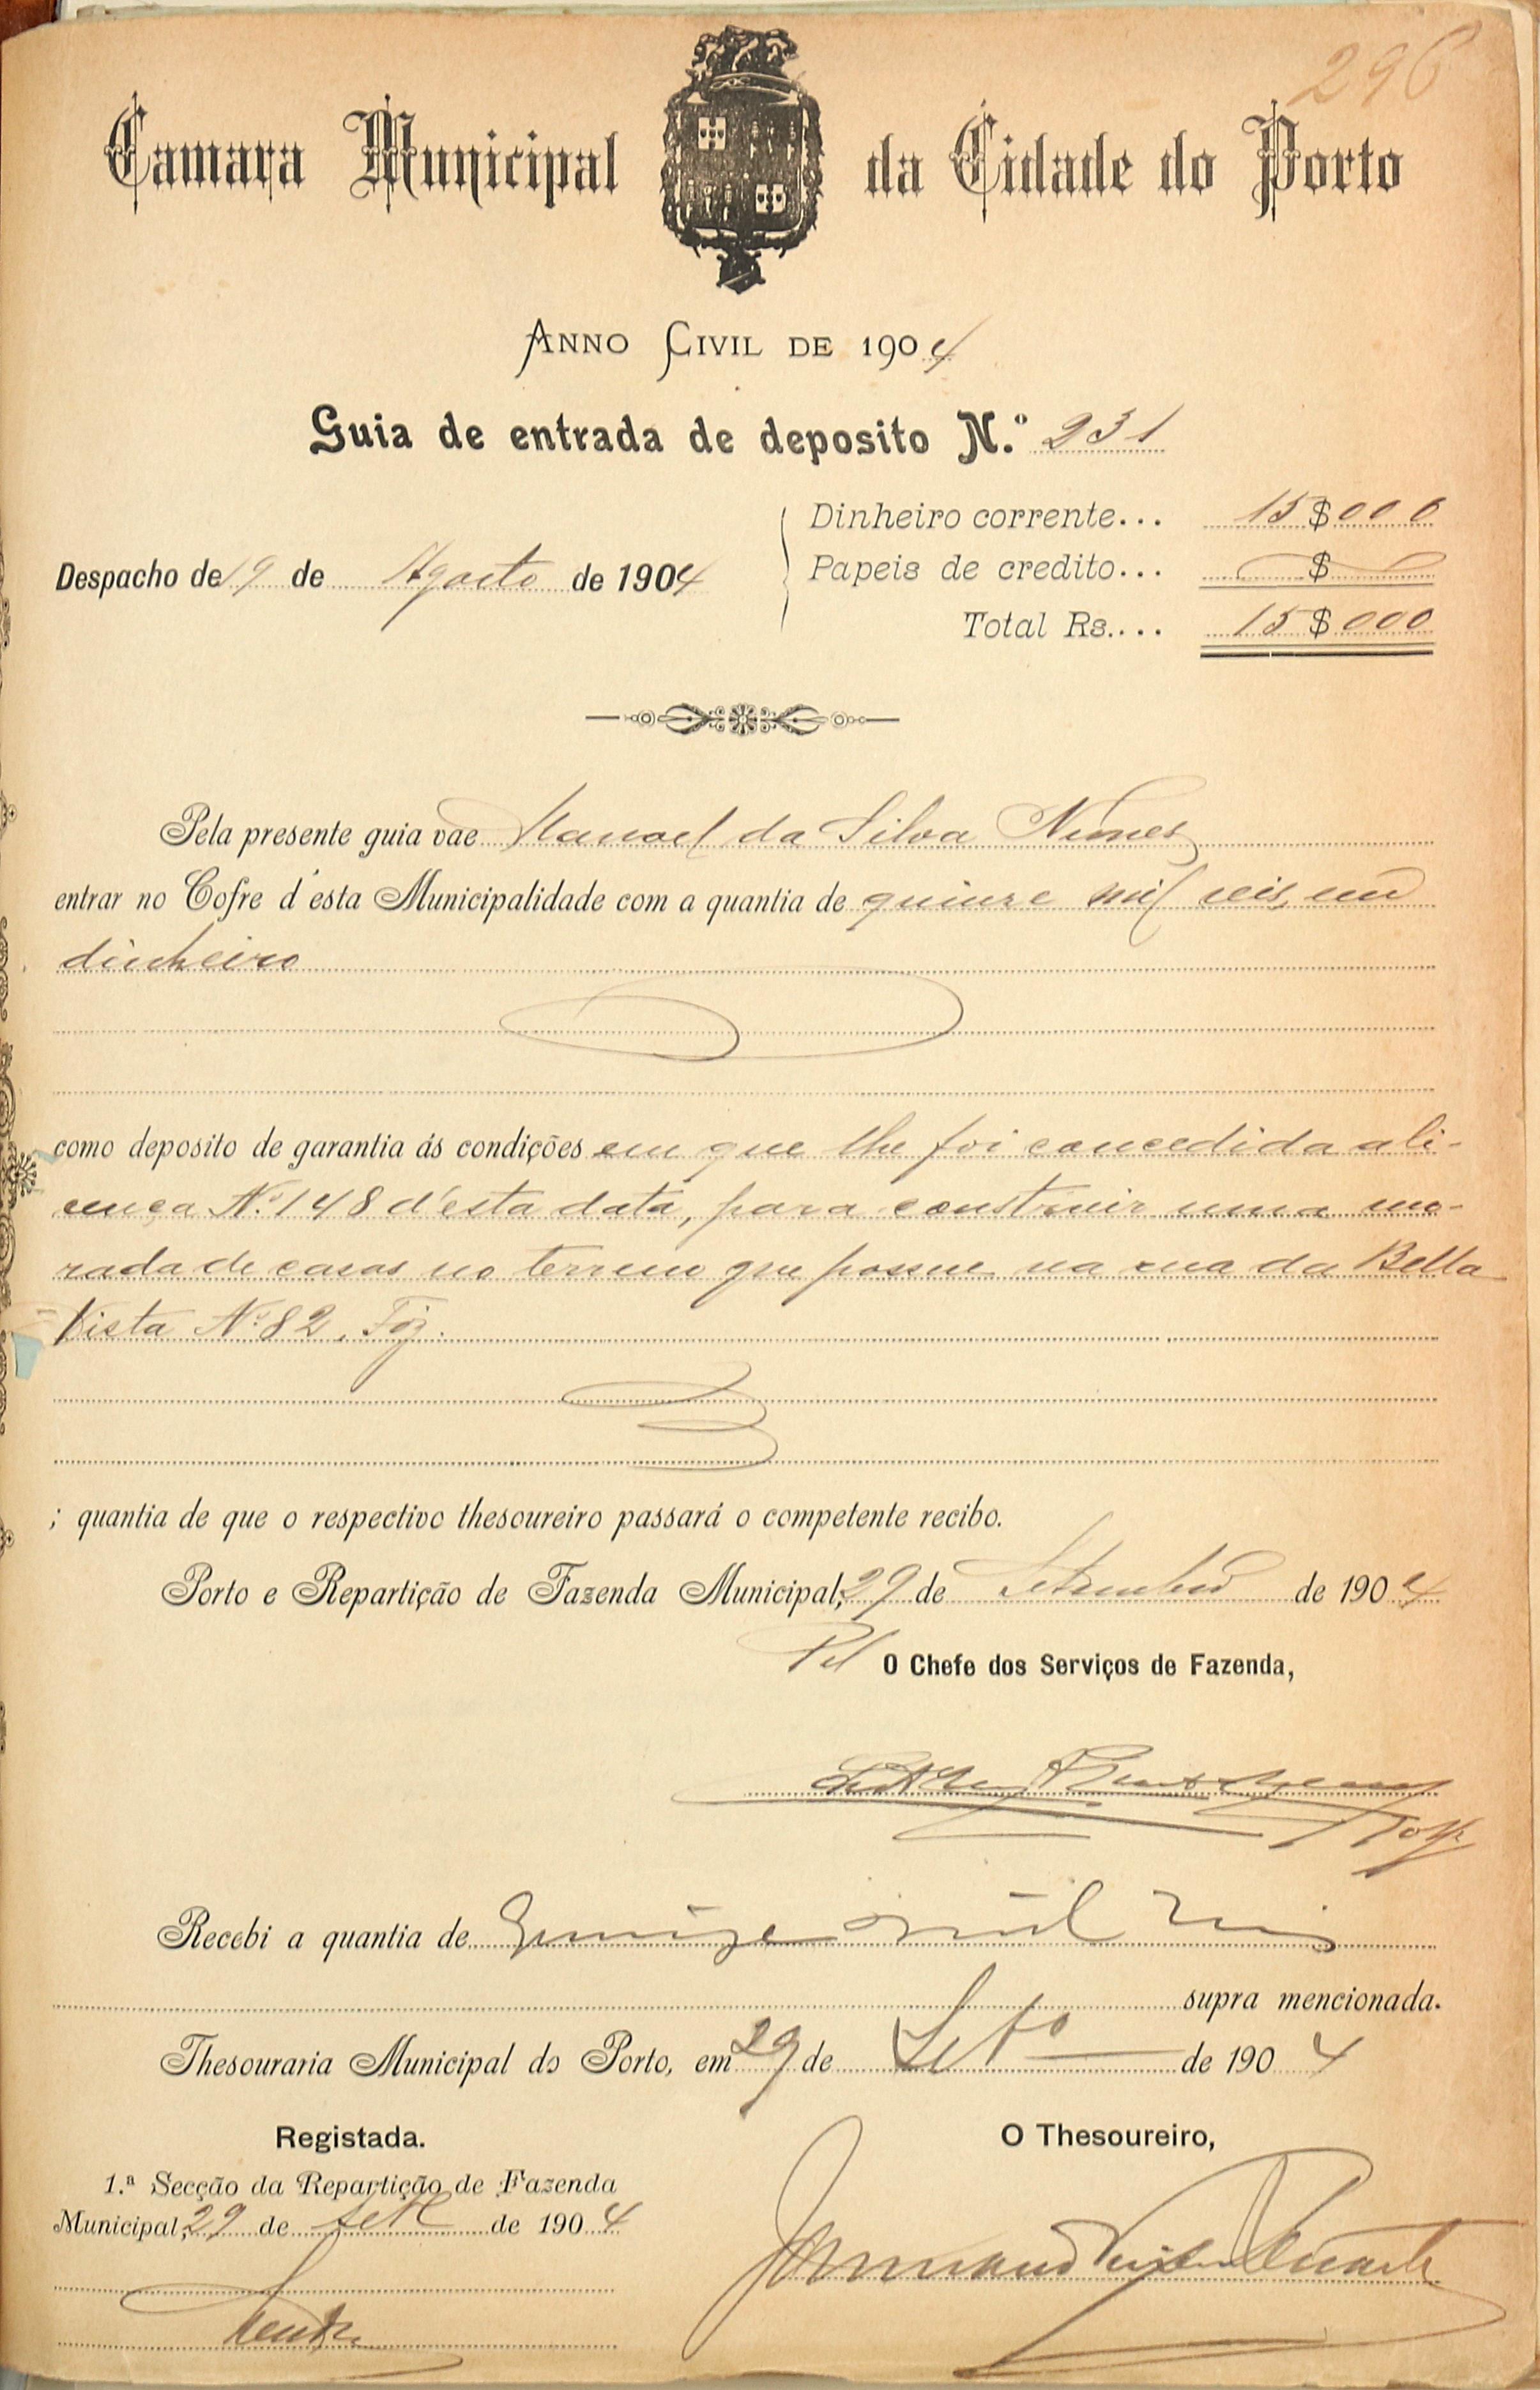 296
Camara Municipal da Cidade do Porto
ANNO CIVIL DE 1904
Guia de entrada de deposito N.º 231
Dinheiro corrente... 15$000
Despacho de 19 de Agosto de 1904
Papeis de credito... $
Total Rs.... 15$000
Pela presente guia vae Manoel da Silva Nunes
entrar no Cofre d'esta Municipalidade com a quantia de quinze mil reis, em
dinheiro
como deposito de garantia ás condições em que lhe foi concedida a li-
cença N.º 148 d'esta data, para construir uma mo-
rada de casas no terreno que possue na rua da Bella
Vista N.º 82, Foz.
; quantia de que o respectivo thesoureiro passará o competente recibo.
Porto e Repartição de Fazenda Municipal, 29 de Setembro de 1904
Pel O Chefe dos Serviços de Fazenda,
Recebi a quantia de Quinze mil reis
supra mencionada.
Thesouraria Municipal do Porto, em 29 de Setº de 1904
Registada.
O Thesoureiro,
1.ª Secção da Repartição de Fazenda
Municipal, 29 de Setº de 1904